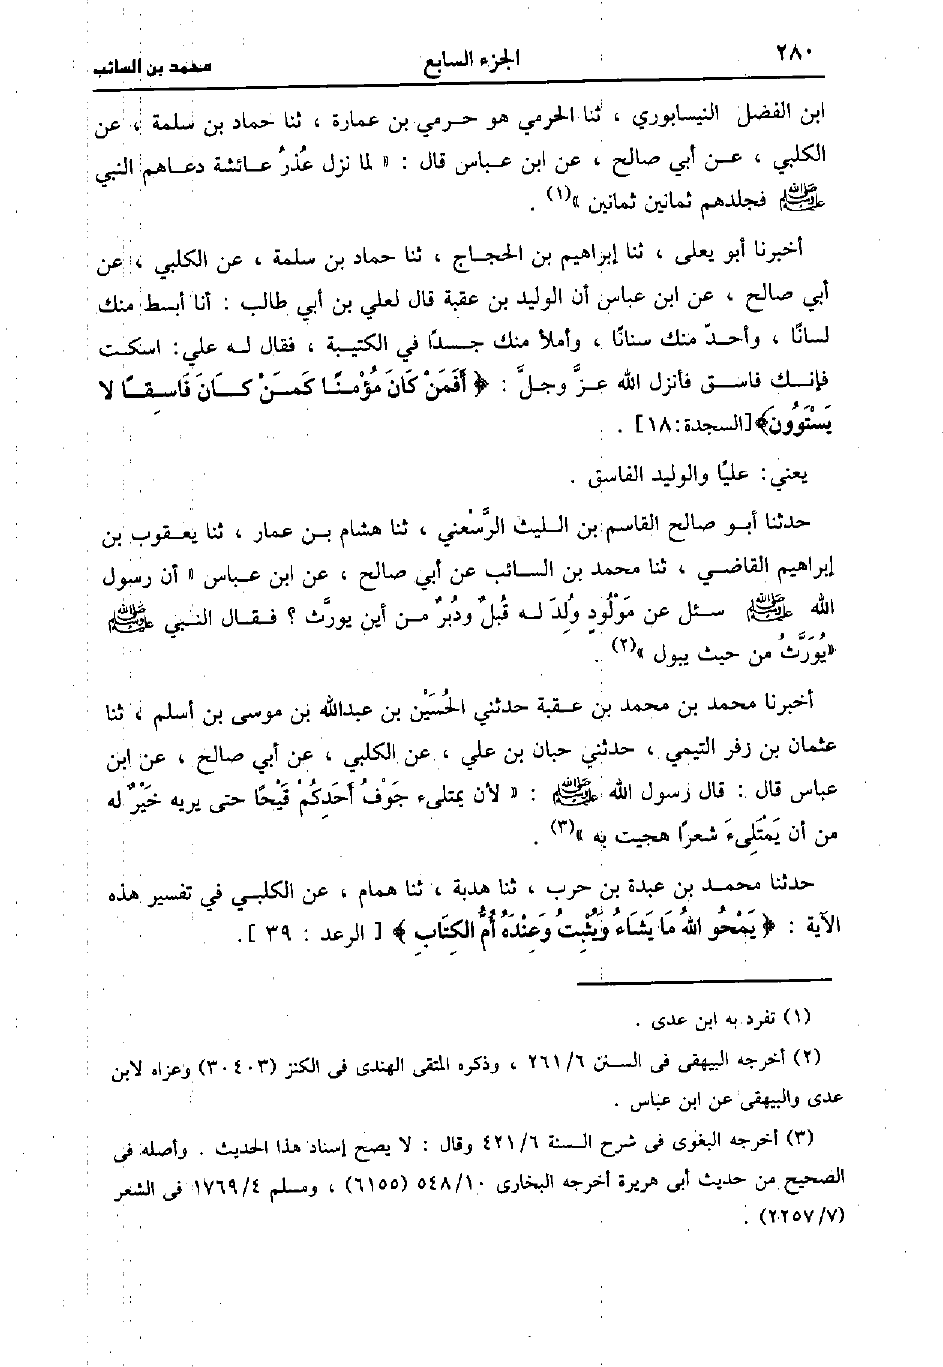 ٢٨٠ الجزء السابع محمد بن السائب
ابن الفضل النيسابوري ، ثنا الحرمي هو حرمي بن عمارة ، ثنا حماد بن سلمة ، عن
الكلبي ، عن أبي صالح ، عن ابن عباس قال : « لما نزل عُذرُ عائشة دعاهم النبي
ﷺ فجلدهم ثمانين ثمانين »(١) .
أخبرنا أبو يعلى ، ثنا إبراهيم بن الحجاج ، ثنا حماد بن سلمة ، عن الكلبي ، عن
أبي صالح ، عن ابن عباس أن الوليد بن عقبة قال لعلي بن أبي طالب : أنا أبسط منك
لسانًا ، وأحدّ منك سنانًا ، وأملأ منك جسدًا في الكتيبة ، فقال له علي: اسكت
فإنك فاسق فأنزل الله عزَّ وجلَّ : ﴿ أَفَمَنْ كَانَ مُؤْمِنًا كَمَنْ كَانَ فَاسِقًا لا
يَسْتَوُونَ﴾[السجدة:١٨] .
يعني: عليًا والوليد الفاسق .
حدثنا أبو صالح القاسم بن الليث الرَّسْعني ، ثنا هشام بن عمار ، ثنا يعقوب بن
إبراهيم القاضي ، ثنا محمد بن السائب عن أبي صالح ، عن ابن عباس « أن رسول
الله ﷺ سئل عن مَوْلُودٍ وُلِدَ له قُبلٌ ودُبرٌ من أين يورَّث ؟ فقال النبي ﷺ
«يُوَرَّثُ من حيث يبول »(٢) .
أخبرنا محمد بن محمد بن عقبة حدثني الحُسَيْن بن عبدالله بن موسى بن أسلم ، ثنا
عثمان بن زفر التيمي ، حدثني حبان بن علي ، عن الكلبي ، عن أبي صالح ، عن ابن
عباس قال : قال رسول الله ﷺ : « لأن يمتلىء جَوْفُ أَحَدِكُمْ قَيْحًا حتى يريه خَيْرٌ له
من أن يَمْتَلِىءَ شعرًا هجيت به »(٣) .
حدثنا محمد بن عبدة بن حرب ، ثنا هدبة ، ثنا همام ، عن الكلبي في تفسير هذه
الآية : ﴿ يَمْحُو اللهُ مَا يَشَاءُ وَيُثْبِتُ وَعِنْدَهُ أُمُّ الكِتَابِ ﴾ [ الرعد : ٣٩ ].
(١) تفرد به ابن عدى .
(٢) أخرجه البيهقى فى السنن ٢٦١/٦ ، وذكره المتقى الهندى فى الكنز (٣٠٤٠٣) وعزاه لابن
عدى والبيهقى عن ابن عباس .
(٣) أخرجه البغوى فى شرح السنة ٤٢١/٦ وقال : لا يصح إسناد هذا الحديث . وأصله فى
الصحيح من حديث أبى هريرة أخرجه البخارى ٥٤٨/١٠ (٦١٥٥) ، ومسلم ١٧٦٩/٤ فى الشعر
(٢٢٥٧/٧) .